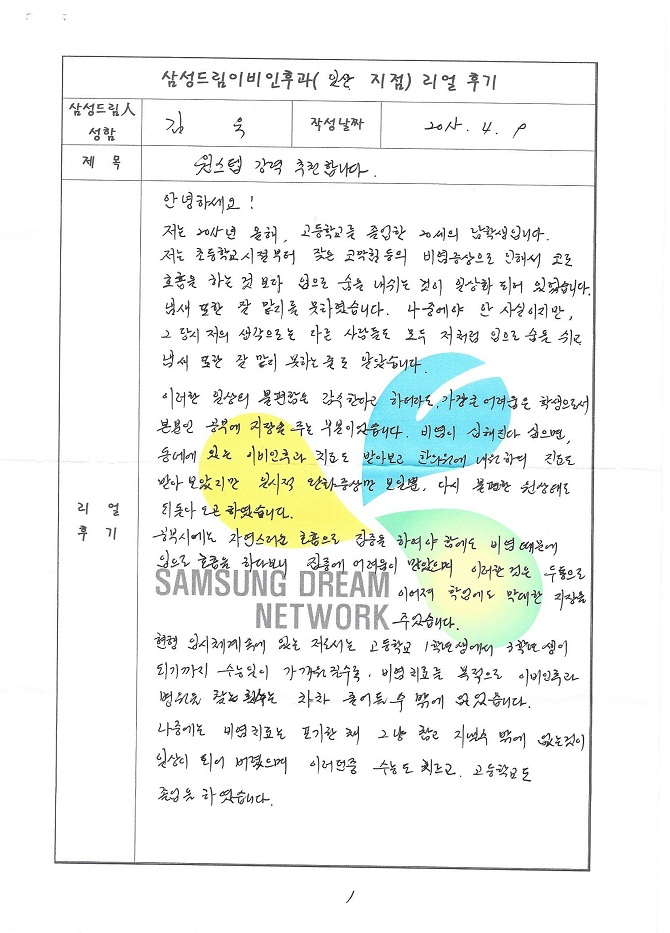 삼성드림이비인후과( 일산 지점) 리얼 후기
삼성드림人
성함
김 욱
작성날짜
2015. 4. 9
제 목
원스텝 강력 추천합니다.
리 얼
후 기
안녕하세요!
저는 2015년 올해, 고등학교를 졸업한 20세의 남학생입니다.
저는 초등학교시절부터 잦은 코막힘등의 비염증상으로 인해서 코로
호흡을 하는 것 보다 입으로 숨을 내쉬는 것이 일상화 되어 있었습니다.
냄새 또한 잘 맡지를 못하였습니다. 나중에야 안 사실이지만,
그 당시 저의 생각으로는 다른 사람들도 모두 저처럼 입으로 숨을 쉬고
냄새 또한 잘 맡지 못하는 줄로 알았습니다.
이러한 일상의 불편함은 감수한다고 하더라도, 가장 큰 어려움은 학생으로서
본분인 공부에 지장을 주는 부분이었습니다. 비염이 심해진다 싶으면,
동네에 있는 이비인후과 치료도 받아보고 한의원에 내원하여 진료도
받아 보았지만 일시적 완화증상만 보일뿐, 다시 불편한 원상태로
되돌아 오곤 하였습니다.
공부시에는 자연스러운 호흡으로 집중을 하여야 함에도 비염 때문에
입으로 호흡을 하다보니 집중에 어려움이 많았으며 이러한 것은 두통으로
이어져 학업에도 막대한 지장을
주었습니다.
SAMSUNG DREAM
NETWORK
현행 입시체계 속에 있는 저로서는 고등학교 1학년생에서 3학년생이
되기까지 수능일이 가까워 질수록, 비염치료를 목적으로 이비인후과
병원을 찾는 횟수는 차차 줄어들 수 밖에 없었습니다.
나중에는 비염치료는 포기한 채 그냥 참고 지낼수 밖에 없는것이
일상이 되어 버렸으며 이러던중 수능도 치르고, 고등학교도
졸업을 하였습니다.
1